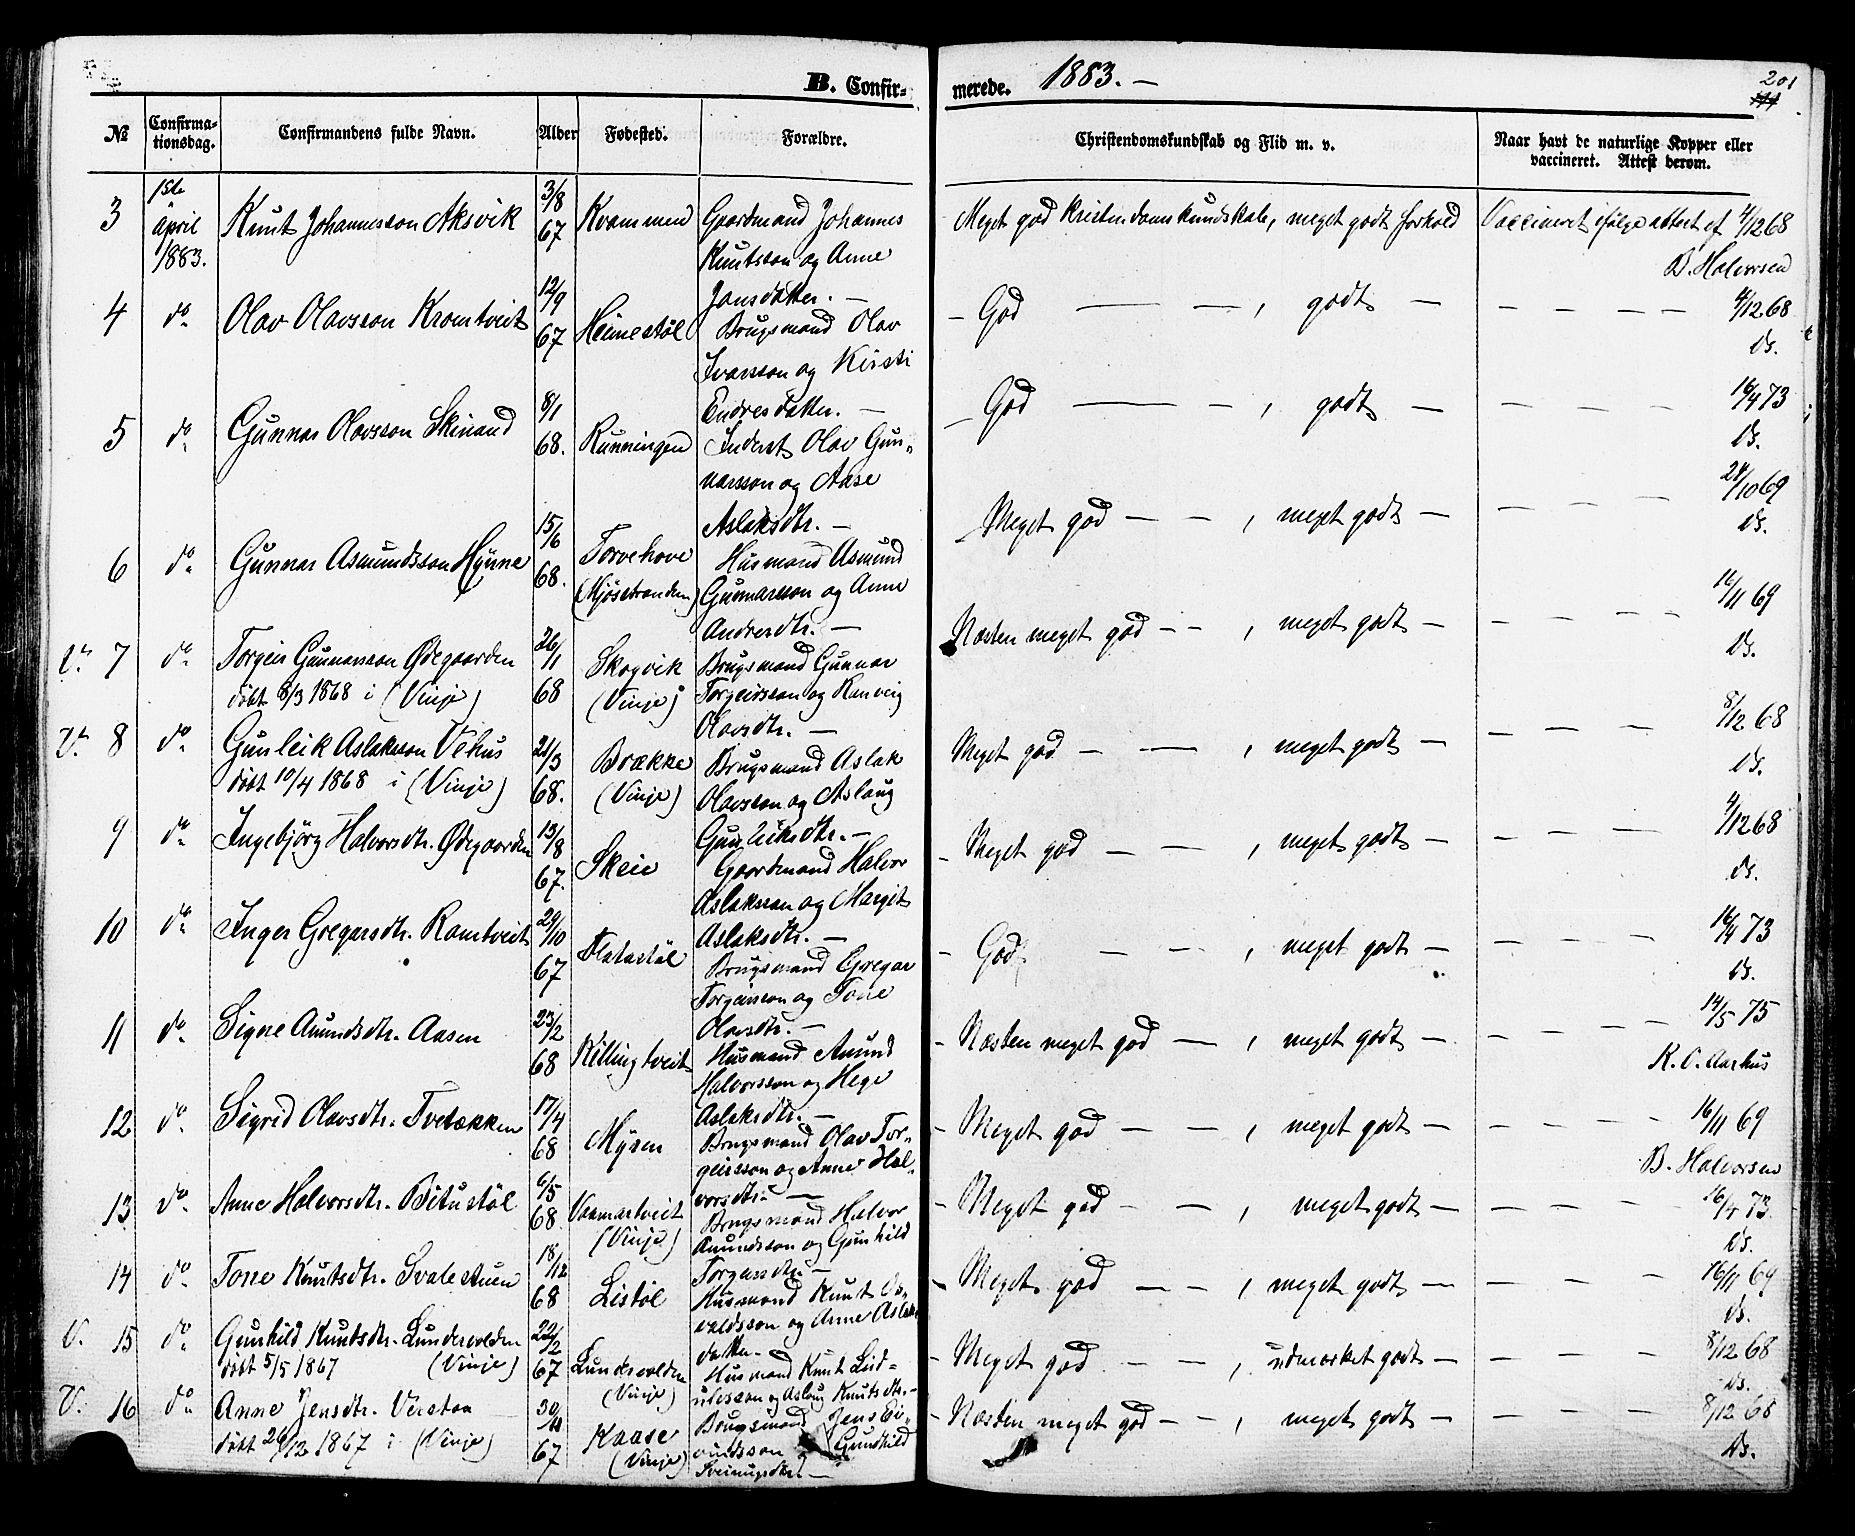 B. Confir-
merede. 1883. -
201
№
Confirma-
tionsdag.
Confirmandens fulde Navn.
Alder
Fødested.
Forældre.
Christendomskundskab og Flid m. v.
Naar havt de naturlige Kopper eller
vaccineret. Attest derom.
3
1ste
April
1883.
Knut Johannesson Aksvik
3/8
67
Kvammen
Gaardmand Johannes
Knutsson og Anne
Jonsdatter. -
Meget god Kristendomskundskab, meget godt forhold
Vaccineret ifølge attest af 4/12 68
B. Halvorsen
4
do
Olav Olavsson Kromtveit
12/9
67
Heimestöl
Brugsmand Olav
Ivarsson og Kirsti
Endresdatter. -
- God — - , godt -
- - - - 4/12 68
ds.
5
do
Gunnar Olavsson Skinand
8/1
68.
Runningen
Inderst Olav Gun-
narsson og Aase
Aslaksdtr. -
- God — - , godt -
- - - - 16/4 73
ds.
6
do
Gunnar Asmundsson Hynne
15/6
68.
Torvehove
(Mjösstranden)
Husmand Asmund
Gunnarsson og Anne
Andresdtr. -
- Meget god - - , meget godt -
- - - 28/10 69
ds.
V. 7
do
Torgeir Gunnarsson Ødegaarden
døbt 8/3 1868 i (Vinje)
26/1
68
Skogvik
(Vinje)
Brugsmand Gunnar
Torgeirsson og Ranveig
Olavsdtr. -
Næsten meget god - - , meget godt -
- - - - 16/11 69
ds.
V. 8
do
Gunleik Aslaksson Vehus
døbt 10/4 1868 i (Vinje)
21/3
68.
Brække
(Vinje)
Brugsmand Aslak
Olavsson og Aslaug
Gunleiksdtr. -
Meget god - — , meget godt -
- - - - 8/12 68
ds.
9
do
Ingebjörg Halvorsdtr. Ødegaarden
13/8
67.
Skeie
Gaardmand Halvor
Aslaksson og Margit
Aslaksdtr. -
- Meget god - - , meget godt -
- - - - 4/12 68
ds.
10
do
Inger Gregarsdtr. Romtveit
29/10
67
Flatastöl
Brugsmand Gregar
Torgeirsson og Tone
Olavsdtr. -
- God - - , meget godt -
- - - - 16/4 73
ds.
11
do
Signe Amundsdtr. Aasen
23/2
68
Killingtveit
Husmand Amund
Halvorsson og Hege
Aslaksdtr. -
- Næsten meget god - , meget godt -
- - - - 14/5 75
K. O. Aarhus
12
do
Sigrid Olavsdtr. Tvetækken
17/4
68
Myren
Brugsmand Olav Tor-
geirsson og Anne Hal-
vorsdtr. -
- Meget god - - , meget godt -
- - - - 16/11 69
B. Halvorsen
13
do
Anne Halvorsdtr. Bitustöl
6/5
68.
Vaamartveit
(Vinje)
Brugsmand Halvor
Amundsson og Gunhild
Torgersdtr. -
- Meget god - - , meget godt -
- - - - 16/4 73.
ds.
14
do
Tone Knutsdtr. Svalestuen
18/12
68
Listöl
Husmand Knut Os-
valdsson og Anne Aslaks-
datter.
- Meget god - - , meget godt -
- - - - 16/11 69
ds.
V. 15
do
Gunhild Knutsdtr. Lundevolden
døbt 5/5 1867 (Vinje)
22/2
67
Lundevolden
(Vinje)
Husmand Knut Leid-
ulvsson og Aslaug Knutsdtr. -
- Meget god - - , udmærket godt -
- - - - 8/12 68
ds.
V. 16
do
Anne Jensdtr. Verstaa
døbt 26/12 1867 i (Vinje)
30/11
67
Kaase
(Vinje)
Brugsmand Jens Ei-
vindsson Gunhild
Sveinugsdtr. -
- Næsten meget god - - , meget godt -
- - - - 8/12 68
ds.